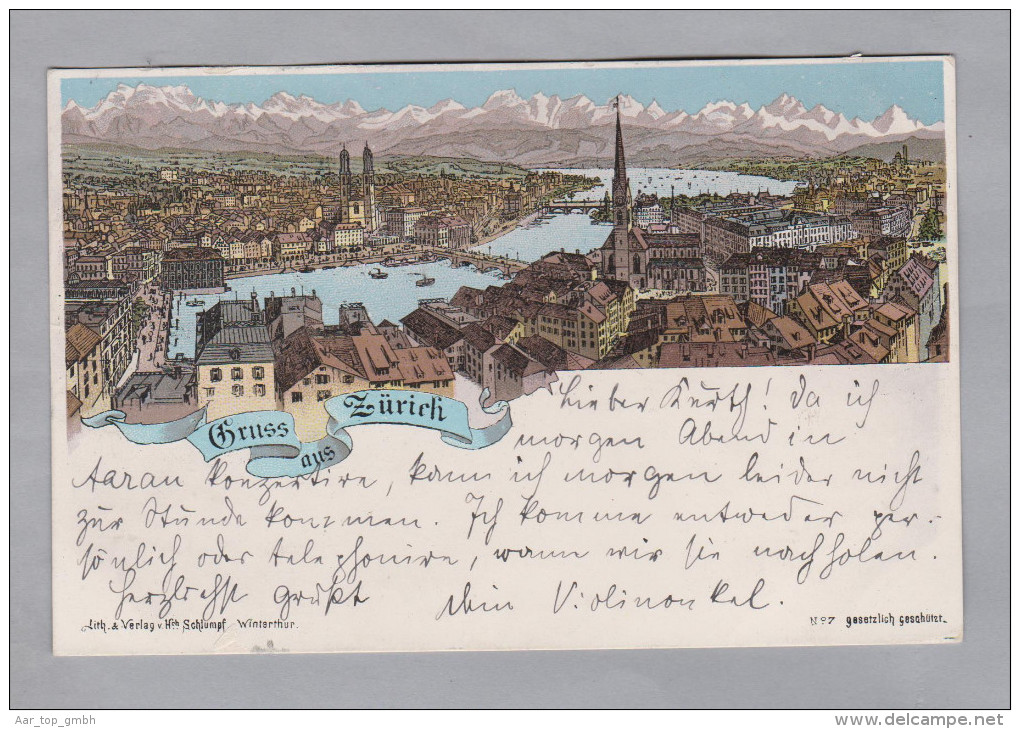 Gruss
aus
Zürich
Lieber Kurth! Da ich
morgen Abend in
Aarau konzertire, kann ich morgen leider nicht
zur Stunde kommen. Ich komme entweder per-
sönlich oder telephonire, wann wir sie nachholen.
Herzlichst grüßt Dein Violinonkel.
Lith. & Verlag v. Hch. Schlumpf Winterthur.
No 7 gesetzlich geschützt.
Aar_top_gmbh
www.delcampe.net